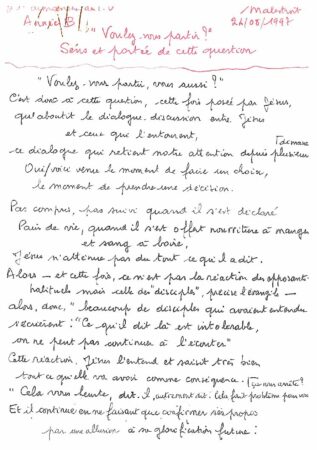 21e dimanche ord. V
Année B
Malestroit
24/08/1997
"Voulez-vous partir?"
Sens et portée de cette question
"Voulez-vous partir, vous aussi?"
C'est donc à cette question, cette fois posée par Jésus,
qu'aboutit le dialogue-discussion entre Jésus
et ceux qui l'entourent,
ce dialogue qui retient notre attention depuis plusieurs
dimanches
Oui, voici venu le moment de faire un choix,
le moment de prendre une décision.
Pas compris, pas suivi quand il s'est déclaré
Pain de vie, quand il s'est offert nourriture à manger
et sang à boire,
Jésus n'atténue pas du tout ce qu'il a dit.
Alors — et cette fois, ce n'est pas la réaction des opposants
habituels mais celle des "disciples", précise l'évangile —
alors, donc, "beaucoup de disciples qui avaient entendu
s'écrièrent: "Ce qu'il dit là est intolérable,
on ne peut pas continuer à l'écouter"
Cette réaction, Jésus l'entend et saisit très bien
tout ce qu'elle va avoir comme conséquence.
"Cela vous heurte, dit-il, autrement dit: Cela fait problème pour vous
Et il continue en ne faisant que confirmer ses propos
par une allusion à sa glorification future: